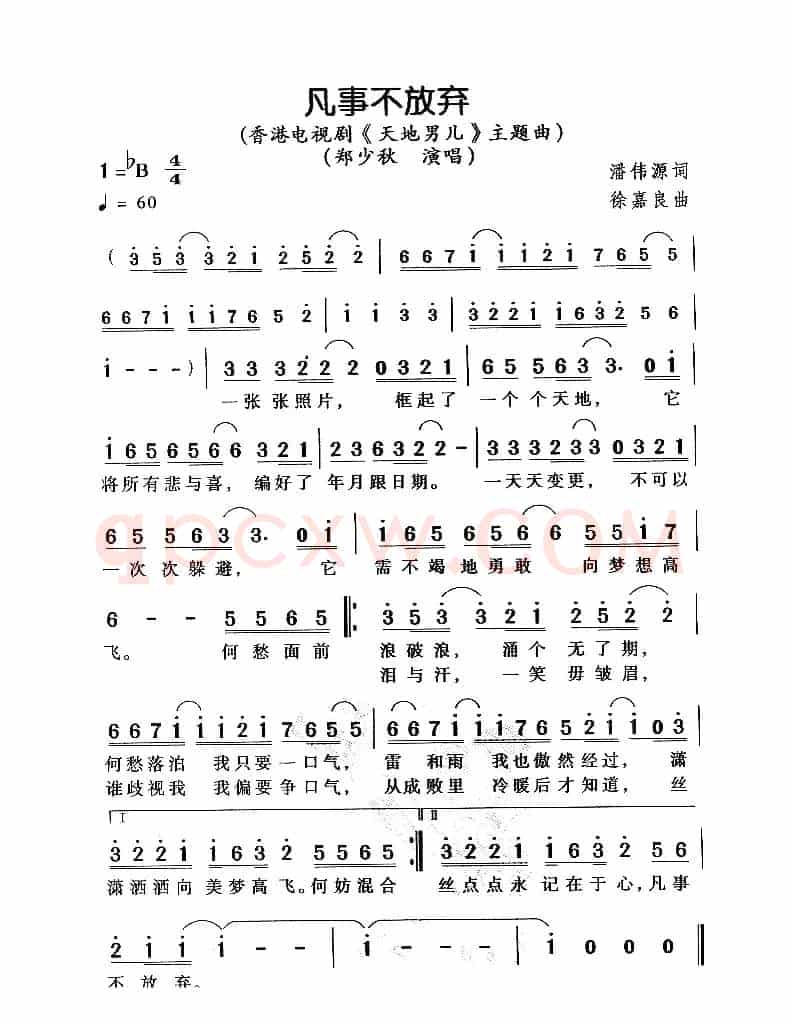 凡事不放弃
(香港电视剧《天地男儿》主题曲)
(郑少秋 演唱)
1=♭B 4/4
潘伟源词
♩= 60
徐嘉良曲
( 3 5 3 3 2 1 2 5 2 2 | 6 6 7 1 1 1 2 1 7 6 5 5 |
6 6 7 1 1 1 7 6 5 2 | 1 1 3 3 | 3 2 2 1 1 6 3 2 5 6 |
1 - - - ) | 3 3 3 2 2 2 0 3 2 1 | 6 5 5 6 3 3· 0 1 |
一张 张照片， 框起了 一个 个天地， 它
1 6 5 6 5 6 6 3 2 1 | 2 3 6 3 2 2 - | 3 3 3 3 2 3 3 0 3 2 1 |
将所有悲与喜，编好了 年月跟日期。 一天天变更， 不可以
6 5 5 6 3 3· 0 1 | 7 6 5 6 7 6 6 5 5 1 7 |
qpcxw.COM
一次 次躲避， 它 需不竭地勇敢 向梦想高
6 - - 5 5 6 5 ‖: 3 5 3 3 2 1 2 5 2 2 |
飞。 何愁面前 浪破浪， 涌个 无了期，
泪与汗， 一笑 毋皱眉，
6 6 7 1 1 1 2 1 7 6 5 5 | 6 6 7 1 1 1 7 6 5 2 1 1 0 3 |
何愁落泊 我只要一口气， 雷 和雨 我也傲然经过， 潇
谁歧视我 我偏要争口气， 从成败里 冷暖后才知道， 丝
I II
3 2 2 1 1 6 3 2 5 5 6 5 :‖ 3 2 2 1 1 6 3 2 5 6 |
潇洒洒向 美梦高飞。何妨混合 丝点点永 记在于心，凡事
2 1 1 1 - - | 1 - - - | 1 0 0 0 ‖
不 放 弃。